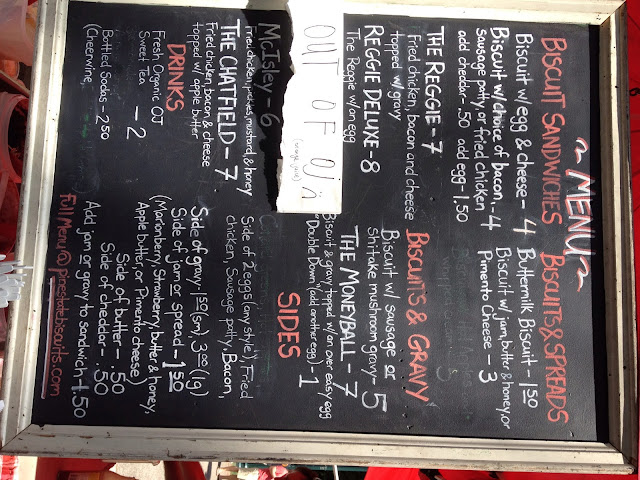 ~ MENU ~
BISCUIT SANDWICHES
Biscuit w/egg & cheese - 4
Biscuit w/choice of bacon, - 4
sausage patty or fried chicken
add cheddar - .50 add egg - 1.50
THE REGGIE - 7
Fried chicken, bacon and cheese
topped w/ gravy
REGGIE DELUXE - 8
The Reggie w/an egg
OUT OF OJ
(orange juice)
McIsley - 6
Fried chicken, pickles, mustard, & honey
THE CHATFIELD - 7
Fried chicken, bacon & cheese
topped w/ apple butter
DRINKS
Fresh Organic OJ
Sweet Tea - 2
Bottled Sodas - 2.50
(Cheerwine,
BISCUITS & SPREADS
Buttermilk Biscuit - 1.50
Biscuit w/jam, butter & honey, or
Pimento Cheese - 3
BISCUITS & GRAVY
Biscuit w/ sausage or
shitake mushroom gravy - 5
THE MONEYBALL - 7
Biscuit & gravy topped w/ an over easy egg
"Double Down" (add another egg) - 1
SIDES
Side of 2 eggs (any style), Fried
chicken, Sausage patty, Bacon,
Side of gravy - 1.50 (sm), 3.00 (lg)
Side of jam or spread - 1.50
(Marionberry, Strawberry, butter & honey,
Apple butter, or Pimento cheese)
Side of butter - .50
Side of cheddar - .50
Add jam or gravy to sandwich - 1.50
Full Menu @ pinestatebiscuits.com